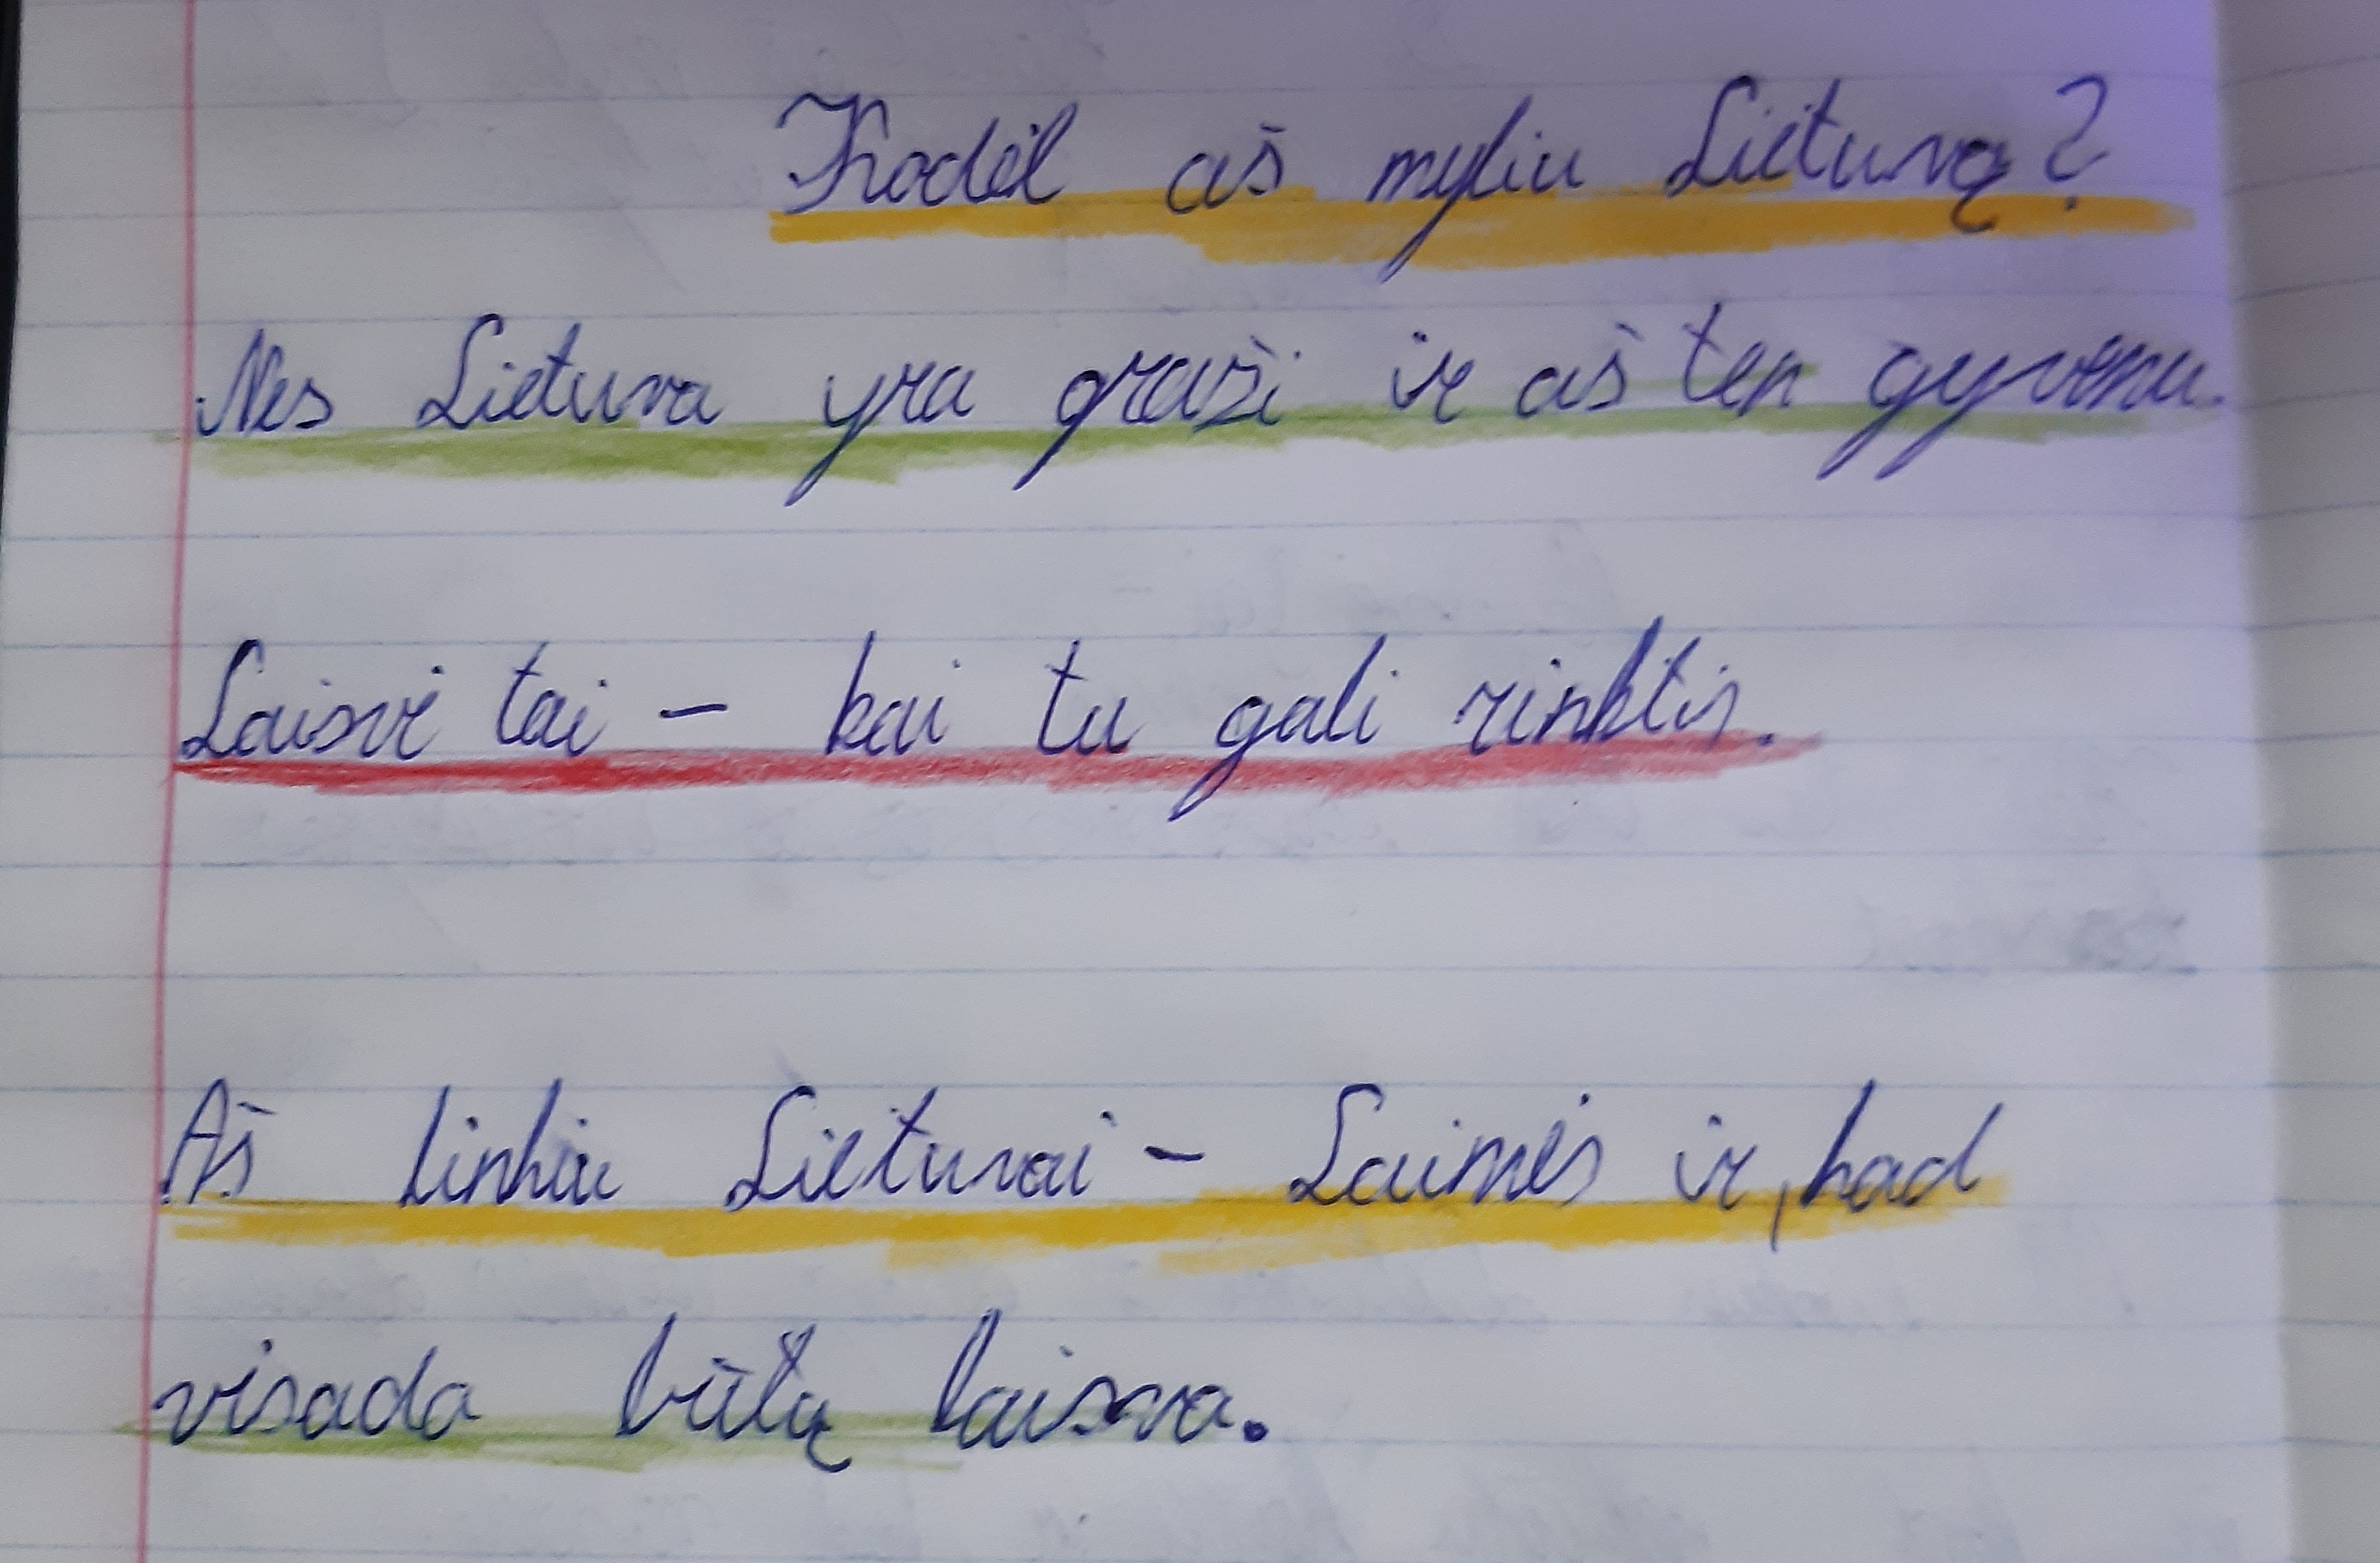 Kodėl aš myliu Lietuvą?
Nes Lietuva yra graži ir aš ten gyvenu.
Laisvė tai – kai tu gali rinktis.
Aš linkiu Lietuvai – Laimės ir, kad
visada būtų laisva.